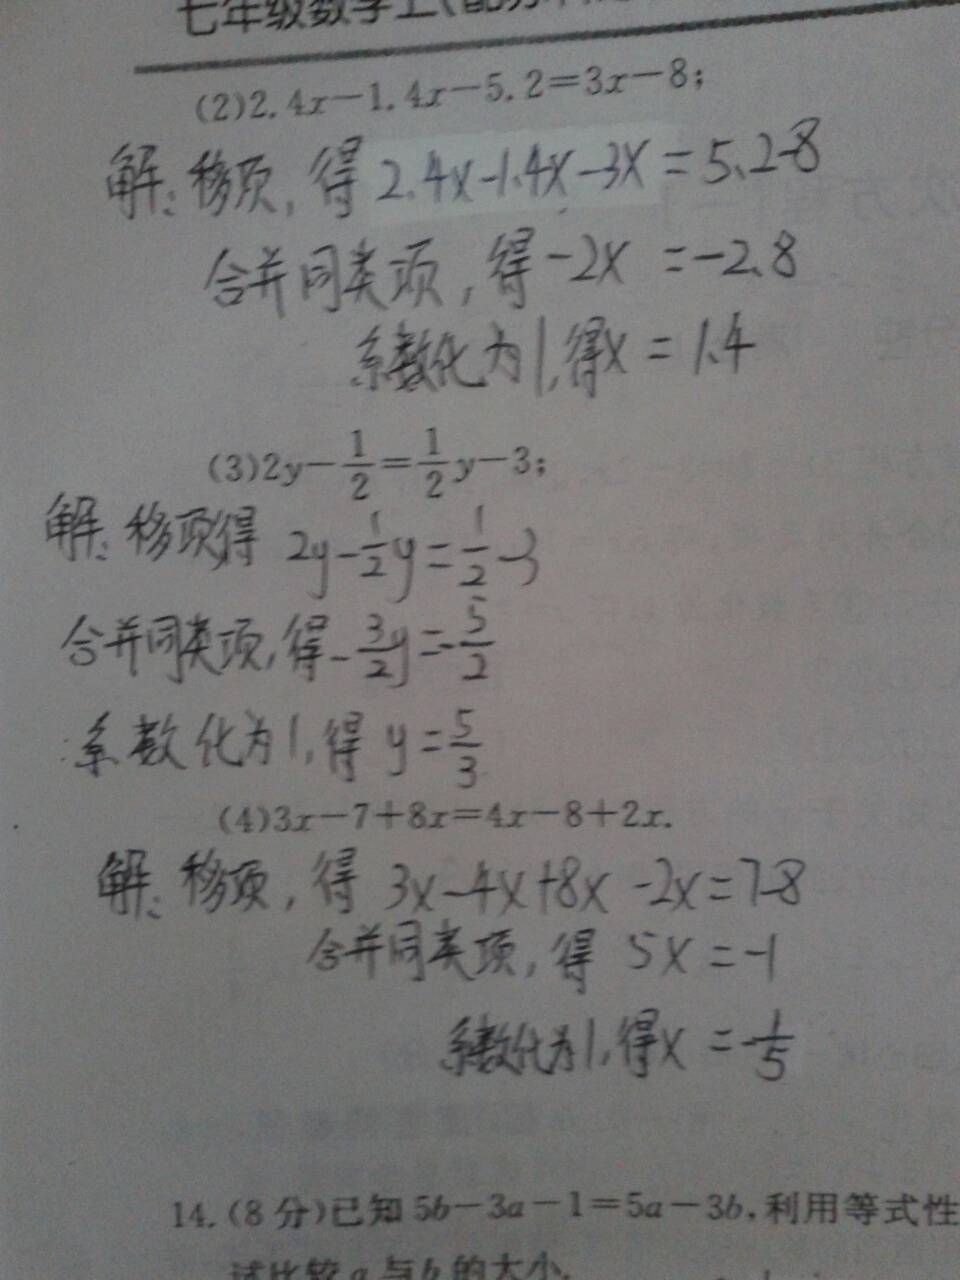 七年级数学上(配
(2)2.4x-1.4x-5.2=3x-8;
解:移项,得 2.4x-1.4x-3x=5.2-8
合并同类项,得 -2x =-2.8
系数化为1,得x = 1.4
(3)2y-\frac{1}{2}=\frac{1}{2}y-3;
解:移项得 2y-\frac{1}{2}y=\frac{1}{2}-3
合并同类项,得-\frac{3}{2}y=-\frac{5}{2}
系数化为1,得 y=\frac{5}{3}
(4)3x-7+8x=4x-8+2x.
解:移项,得 3x-4x+8x-2x=7-8
合并同类项,得 5x=-1
系数化为1,得x =-\frac{1}{5}
14.(8分)已知 5b-3a-1=5a-3b,利用等式性
试比较 a 与 b 的大小.